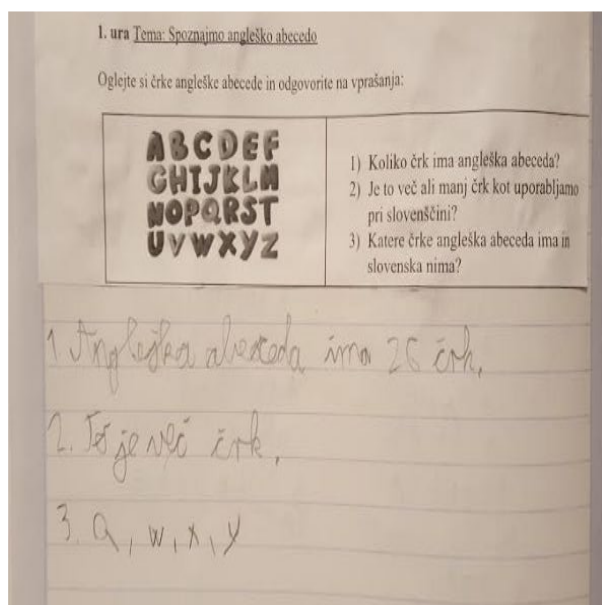 1. ura Tema: Spoznajmo angleško abecedo
Oglejte si črke angleške abecede in odgovorite na vprašanja:
ABCDEF
GHIJKLM
NOPQRST
UVWXYZ
1) Koliko črk ima angleška abeceda?
2) Je to več ali manj črk kot uporabljamo
pri slovenščini?
3) Katere črke angleška abeceda ima in
slovenska nima?
1 Angleška abeceda ima 26 črk.
2. To je več črk.
3. Q, w, x, y